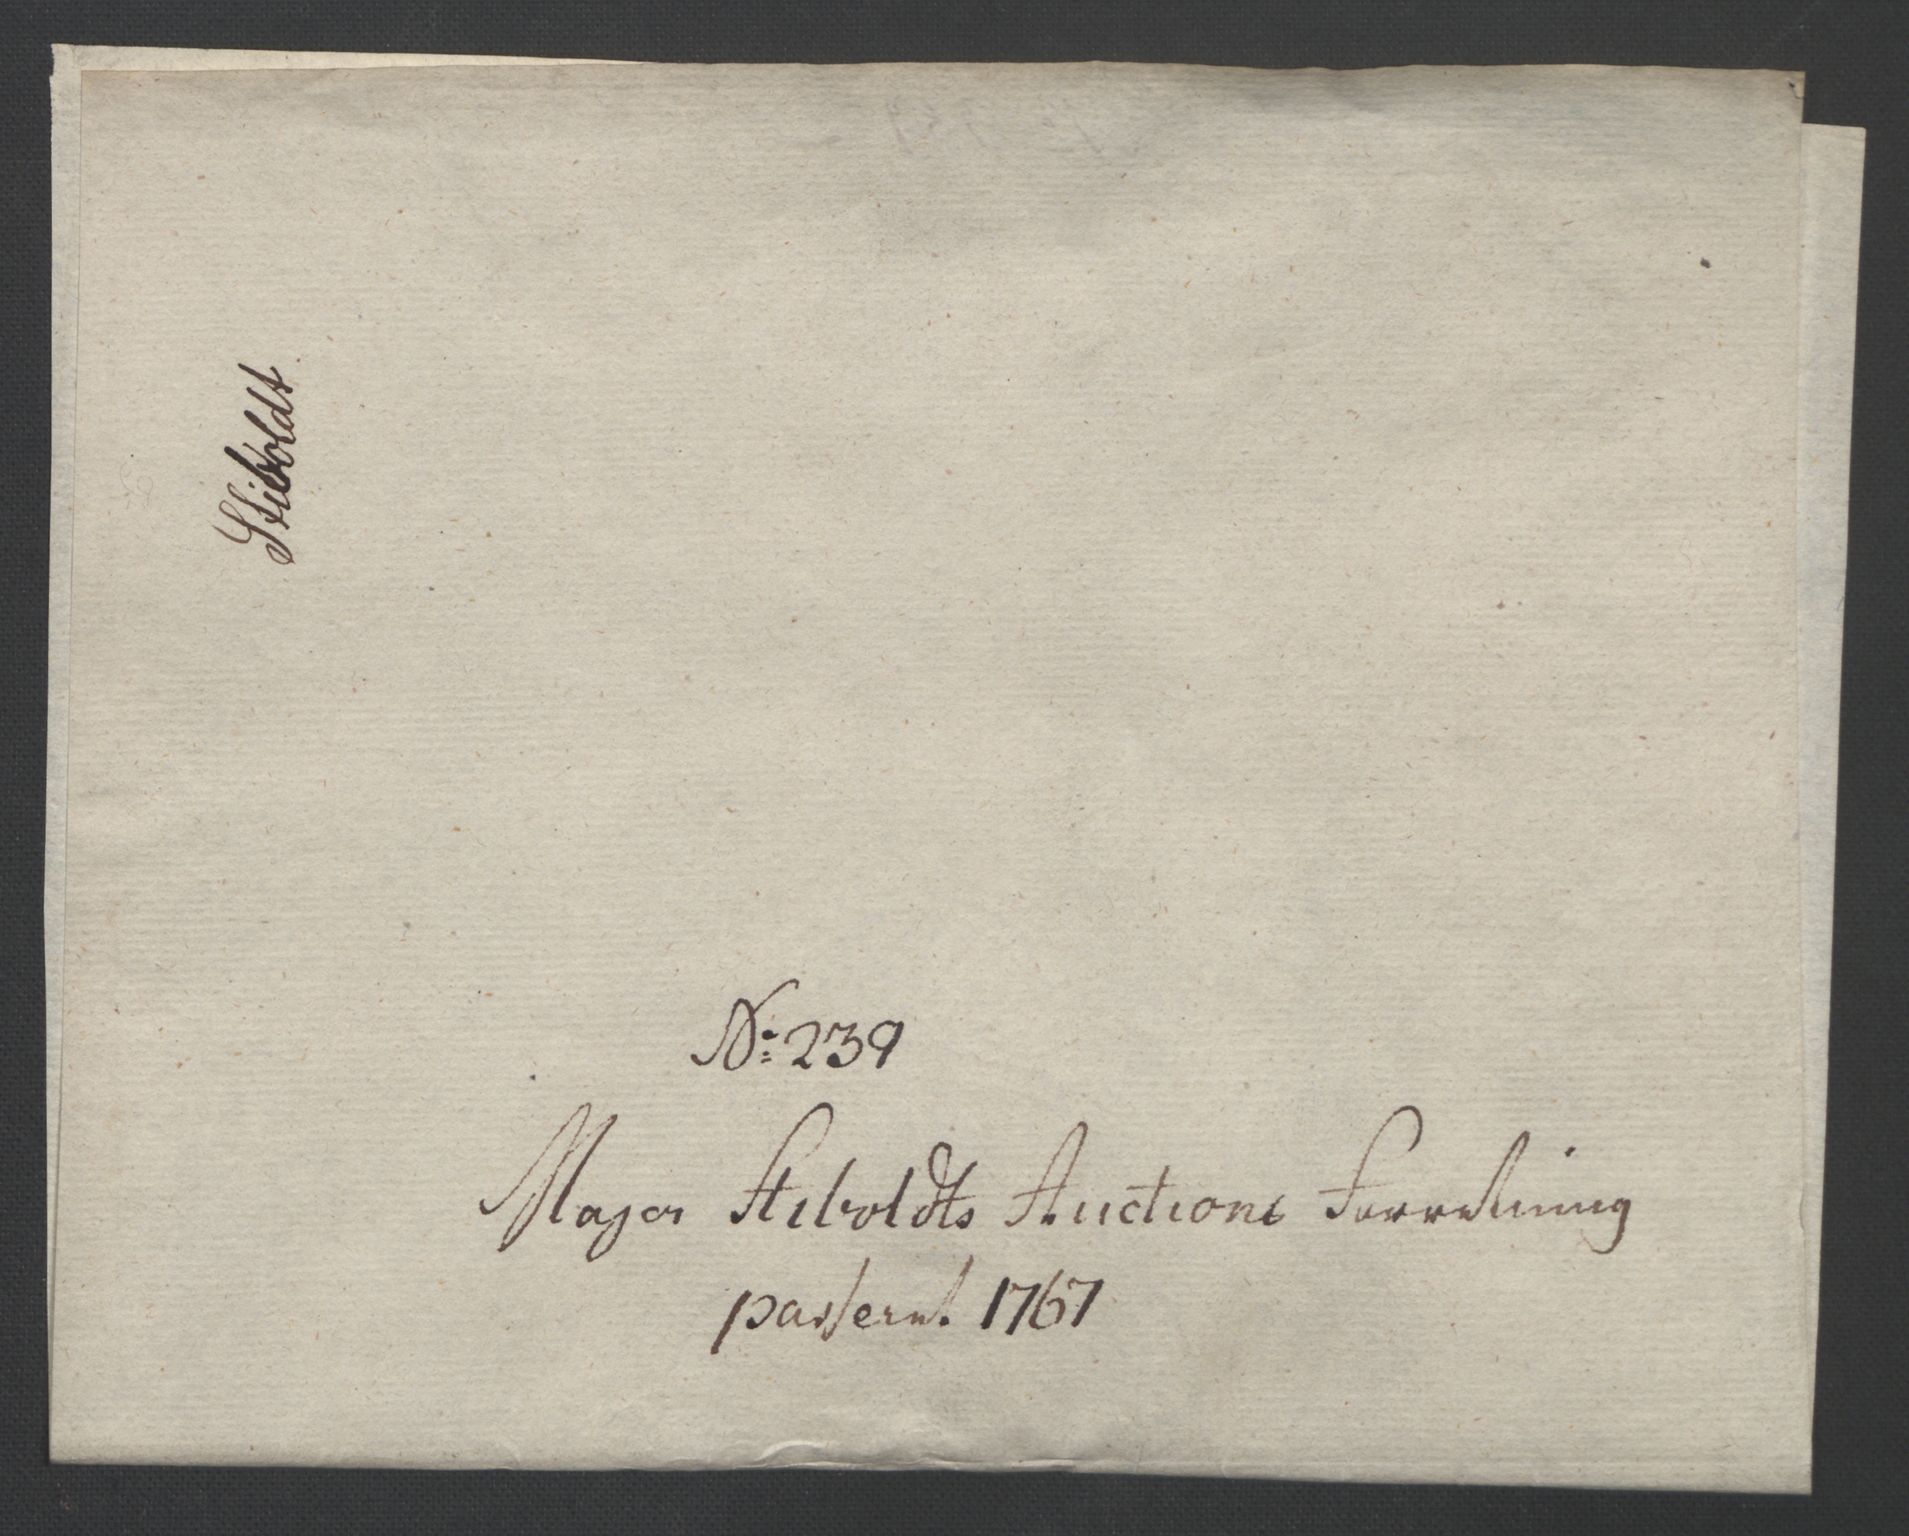 Stiboldt.
No: 239
Major Stiboldts Auctions Forretning
passeret 1767